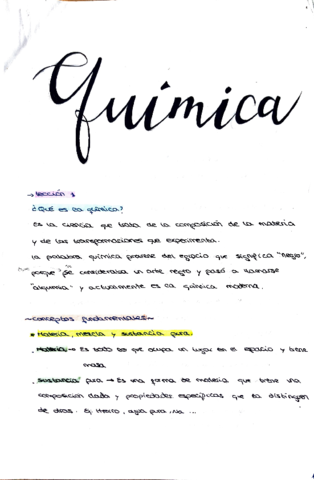 Química
→ Lección 1
¿Qué es la química?
Es la ciencia que trata de la composición de la materia
y de las transformaciones que experimenta.
La palabra química proviene del egipcio que significa "negro",
porque se consideraba un arte negro y pasó a llamarse
"alquimia" y actualmente es la química moderna.
~conceptos fundamentales~
* Materia, mezcla y sustancia pura.
. Materia → Es todo lo que ocupa un lugar en el espacio y tiene
masa
. sustancia pura → Es una forma de materia que tiene una
composición dada y propiedades específicas que la distinguen
de otras. Ej. Hierro, agua pura, Na ...